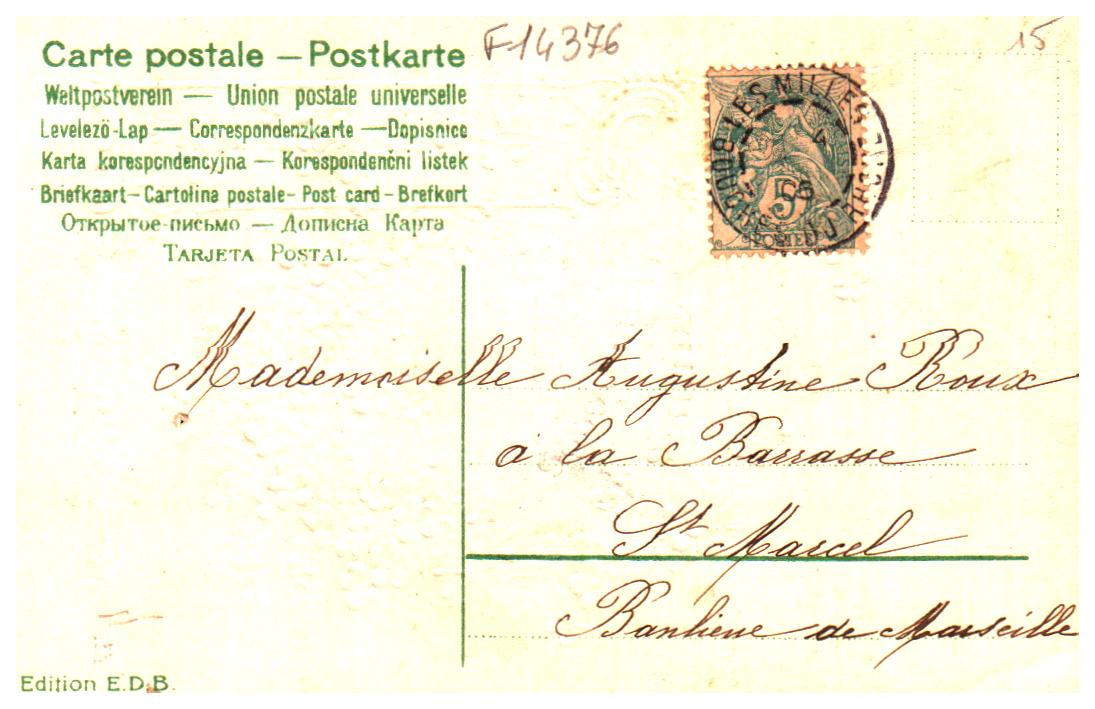 F14376
15
Carte postale — Postkarte
Weltpostverein — Union postale universelle
Levelező-Lap — Correspondenzkarte — Dopisnice
Karta korespondencyjna — Korespondenční lístek
Briefkaart - Cartolina postale - Post card - Brefkort
Открытое-письмо — Дописна Карта
TARJETA POSTAL
LES MILLES
5
POSTES
Mademoiselle Augustine Roux
à la Barrasse
St Marcel
Banlieue de Marseille
Edition E.D.B.